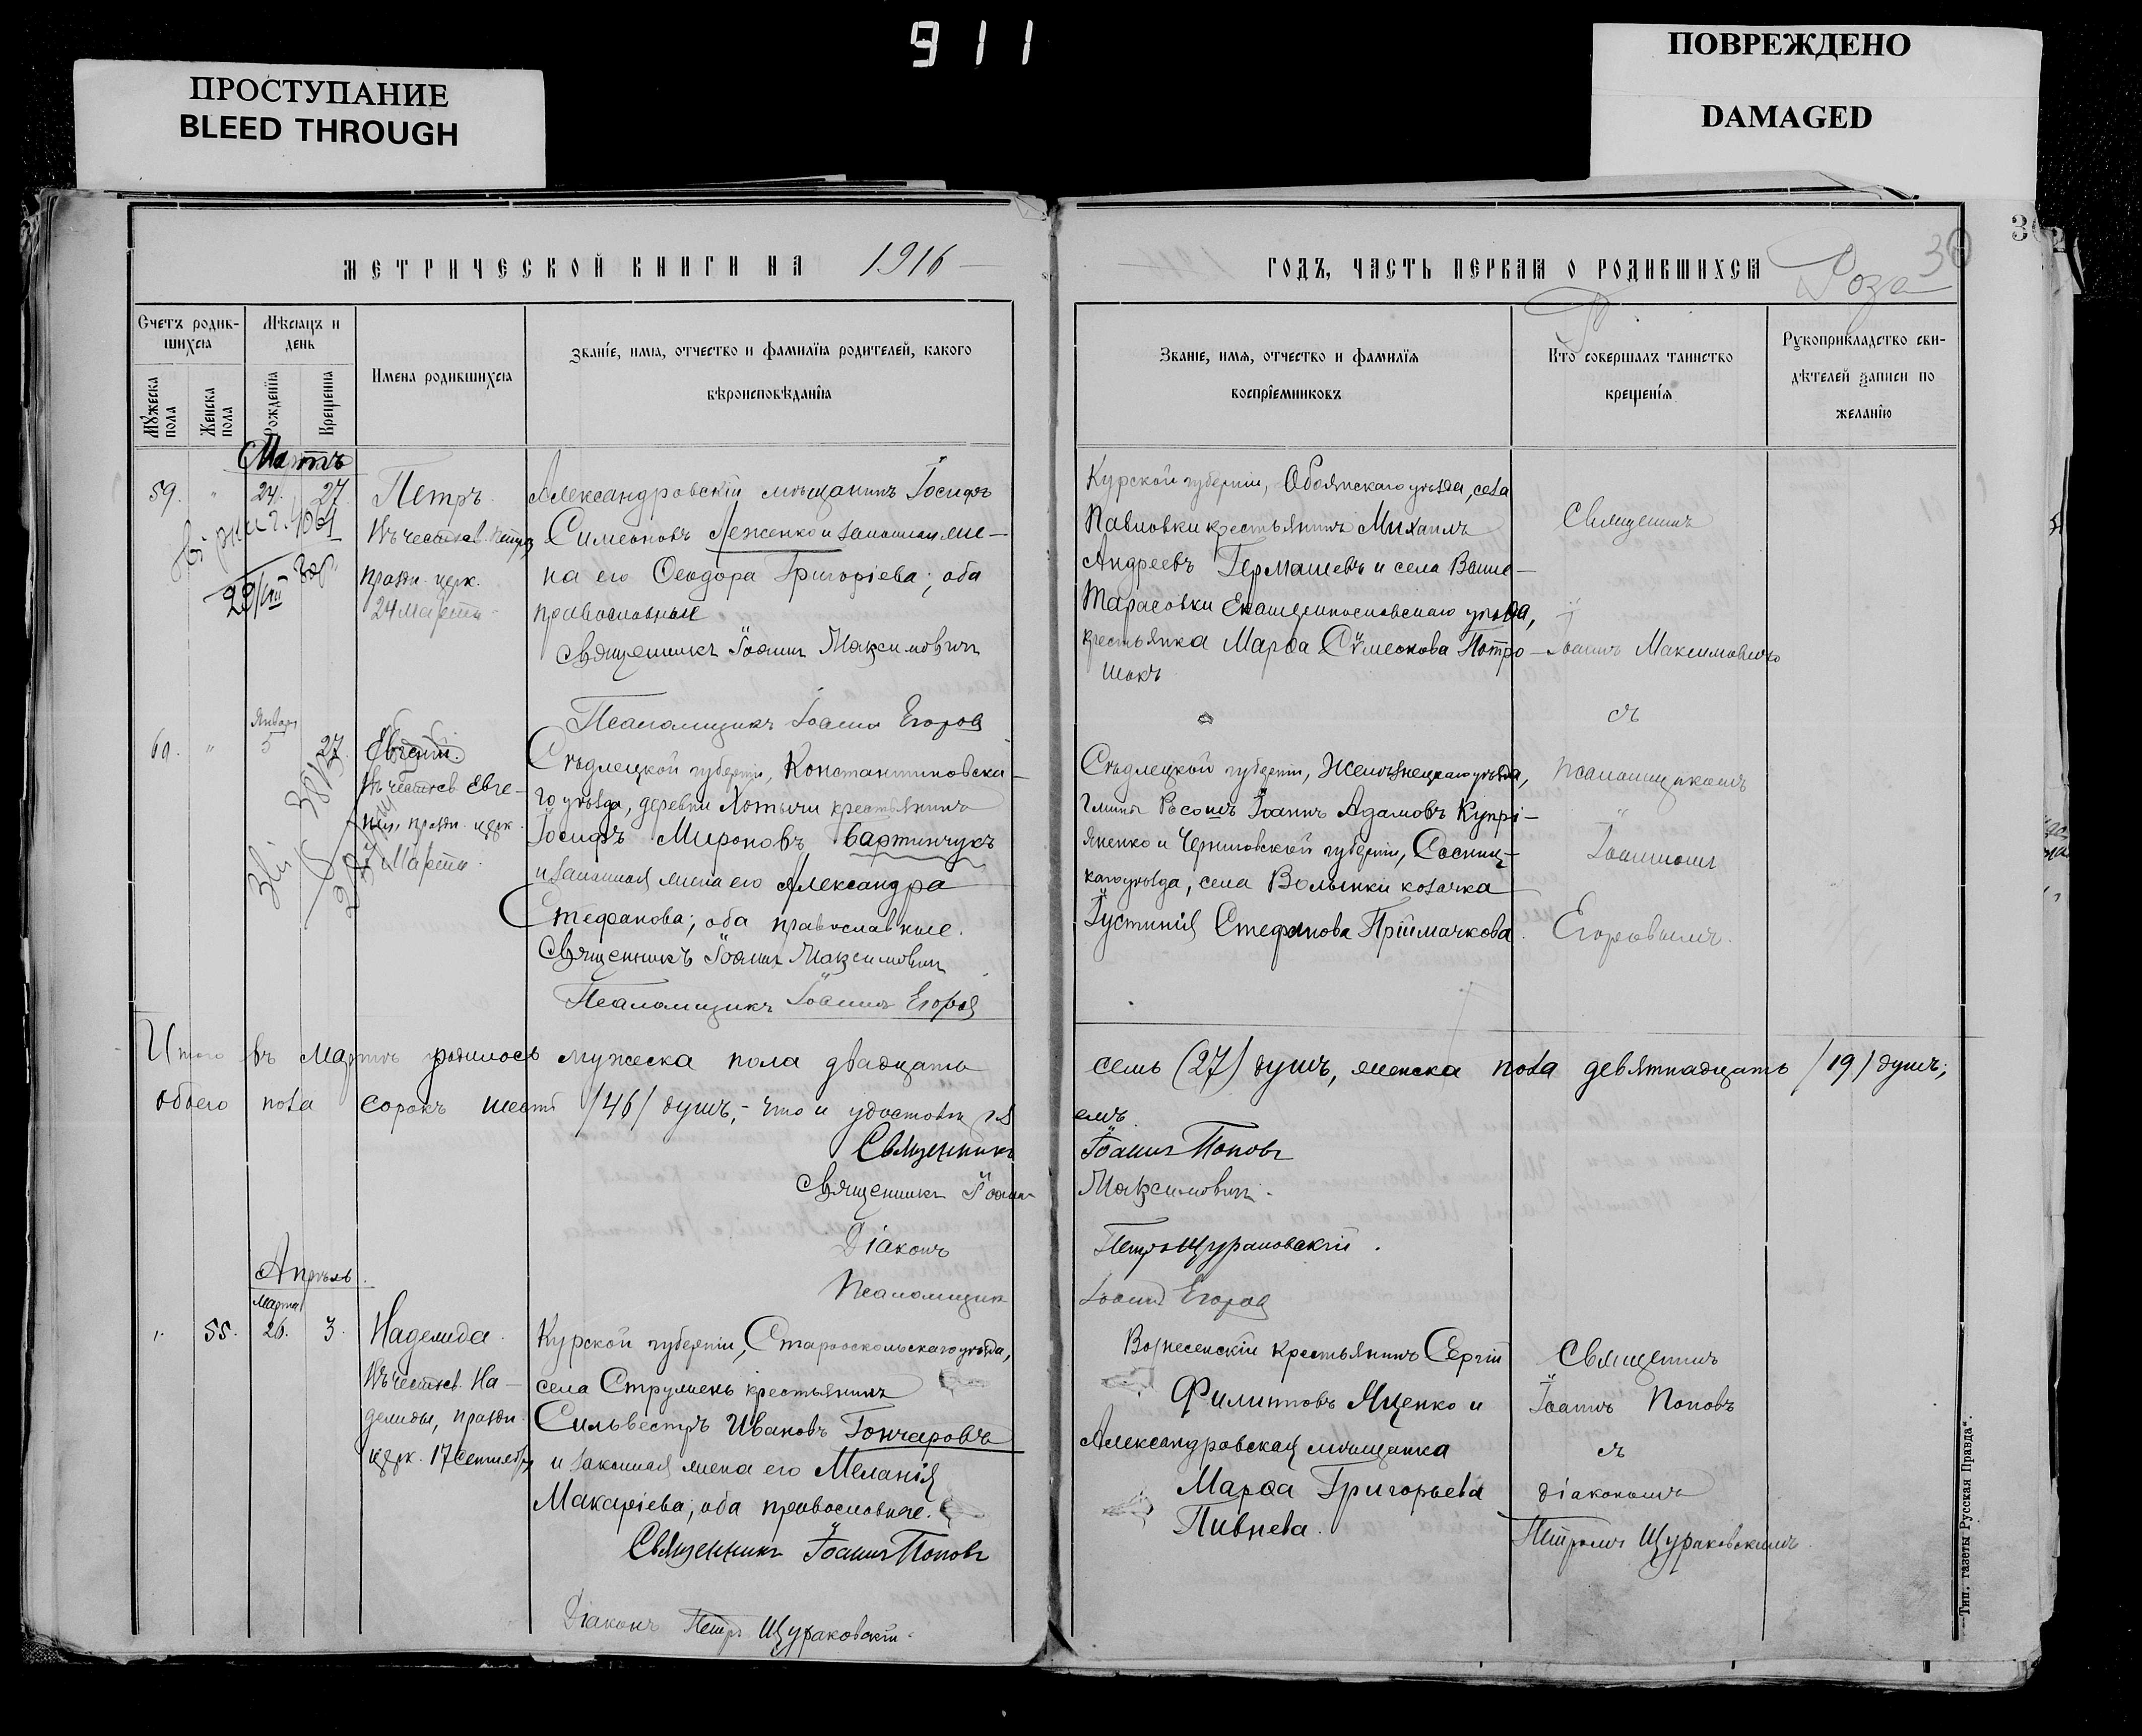 911
ПРОСТУПАНИЕ
BLEED THROUGH
ПОВРЕЖДЕНО
DAMAGED
МЕТРИЧЕСКОЙ КНИГИ НА 1916
Счетъ родив-
шихся
Мѣсяцъ и
день
Мужеска пола
Женска пола
Рожденія
Крещенія
Имена родившихся
Званіе, имя, отчество и фамилія родителей, какого
вѣроисповѣданія
Мартъ
59. " 24. 27. Петръ.
Въ честь св. Петра
праздн. церк.
24 Марта
Александровскій мѣщанинъ Іосифъ
Симеоновъ Леженко и законная же-
на его Ѳеодора Григоріева; оба
православные
Священникъ Іоаннъ Максимович
Псаломщикъ Іоаннъ Егоров
Январ
60. " 5 27. Евгеній.
Въ честь св. Евге-
нія, праздн. церк.
7 Марта.
Сѣдлецкой губерніи, Константиновска-
го уѣзда, деревни Хотычи крестьянинъ
Іосифъ Мироновъ Бартничукъ
и законная жена его Александра
Стефанова; оба православные.
Священникъ Іоаннъ Максимович
Псаломщикъ Іоаннъ Егоров
Итого въ Мартѣ родилось мужеска пола двадцать
обоего пола сорокъ шесть /46/ душъ, - что и удостовѣря
Священникъ
Священникъ Іоанн
Діаконъ
Псаломщик
Апрѣль.
Марта
" 55. 26. 3. Надежда.
Въ честь св. На-
дежды, праздн.
церк. 17 Сентября
Курской губерніи, Старооскольскаго уѣзда,
села
крестьянинъ
Сильвестръ Ивановъ Гончаровъ
и законная жена его Меланія
Макаріева; оба православные.
Священникъ Іоаннъ Поповъ
Діаконъ Петръ Щураковскій
ГОДЪ, ЧАСТЬ ПЕРВАЯ О РОДИВШИХСЯ
Роза
Званіе, имя, отчество и фамилія
воспріемниковъ
Кто совершалъ таинство
крещенія
Рукоприкладство сви-
дѣтелей записи по
желанію
Курской губерніи, Обоянскаго уѣзда, села
Павловки крестьянинъ Михаилъ
Андреевъ Гермашевъ и села
Тарасовки Екатеринославскаго уѣзда,
крестьянка Марѳа Сѵмеонова
Священникъ
Іоаннъ Максимовичъ
съ
Сѣдлецкой губерніи,
уѣзда,
гмины Россошъ Іоаннъ Адамовъ Купрі-
яненко и Черниговской губерніи, Сосниц-
каго уѣзда, села Волынки козачка
Іустинія Стефанова Пріймачкова.
псаломщикомъ
Іоанномъ
Егоровымъ.
семь (27) душъ, женска пола девятнадцать /19/ душъ;
емъ.
Іоаннъ Поповъ
Максимович.
Петръ Щураковскій.
Іоаннъ Егоров
Вознесенскій крестьянинъ Сергій
Филипповъ Яценко и
Александровская мѣщанка
Марѳа Григорьева
Пивнева.
Священникъ
Іоаннъ Поповъ
съ
діакономъ
Петромъ Щураковскимъ.
Тип. газеты „Русская Правда“.